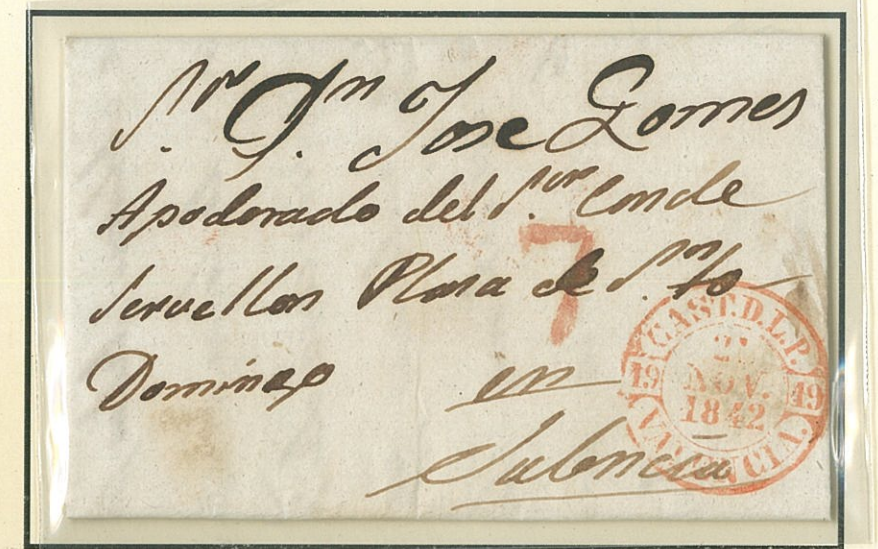 Sr. Dn. Jose Gomes
Apoderado del Sor. Conde
Servellon Plasa de Snto
Domingo en
Valencia
7
CAST.D.L.P.
19 19
NOV.
1842
VALENCIA.